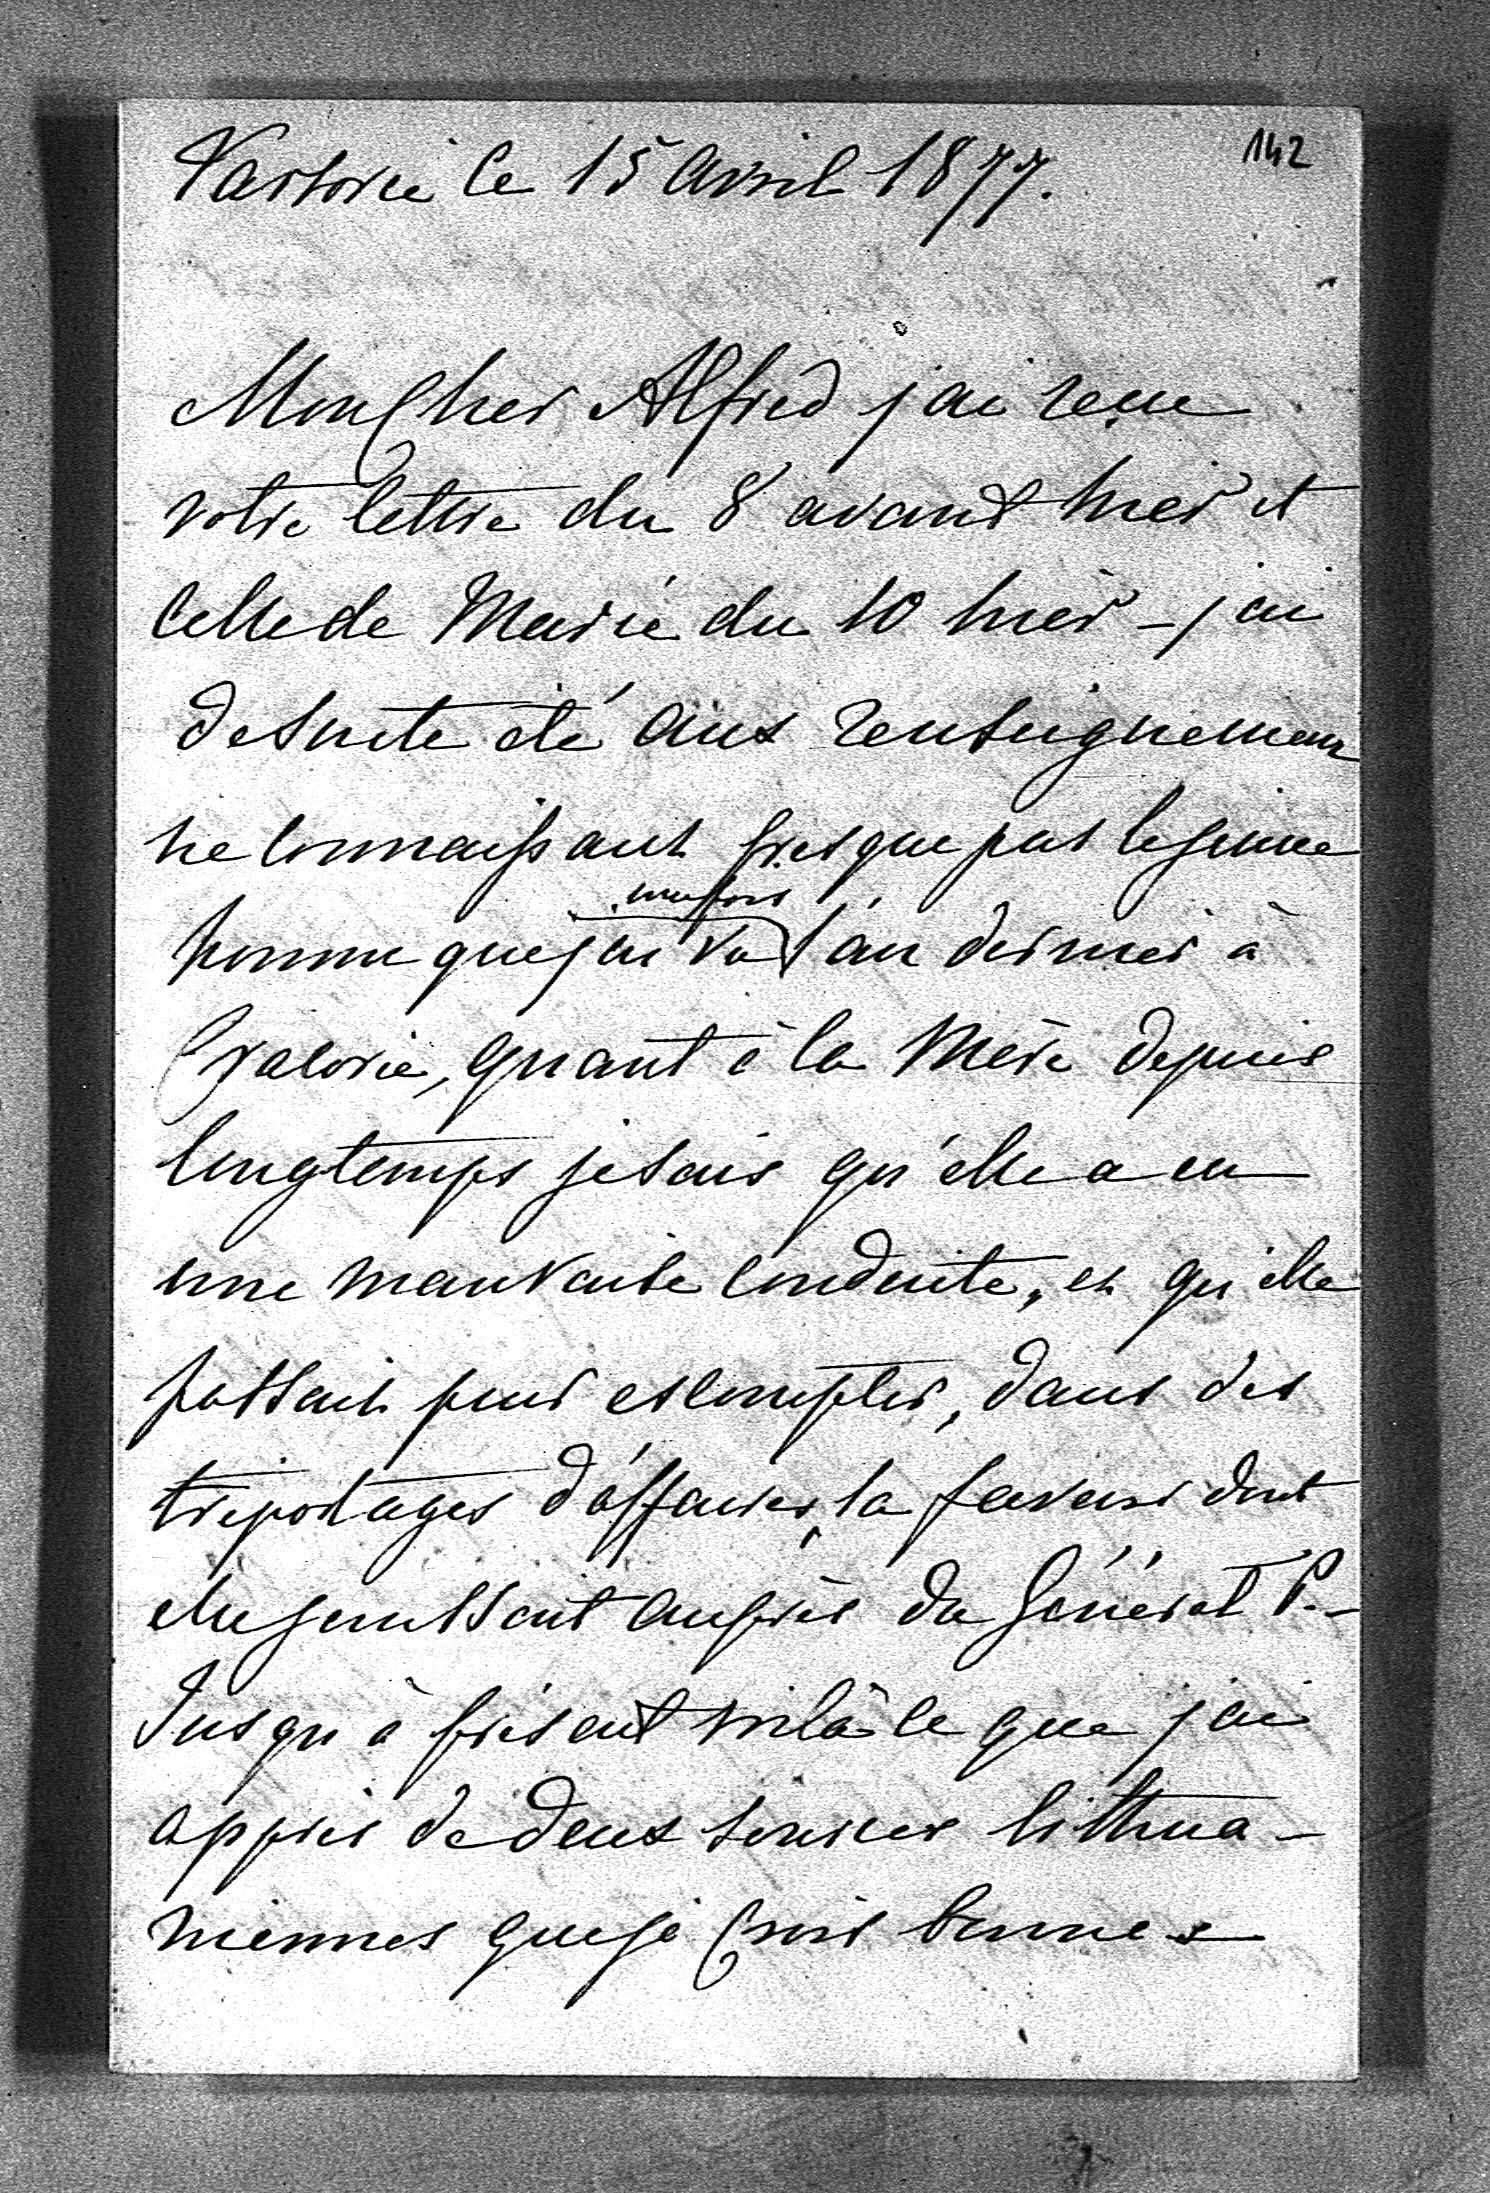 142
Varsovie Ce 15 Avril 1877.
Mon Cher Alfred j'ai reçue
votre lettre du 8 avant hier et
Celle de Marie du 10 hier – j'ai
de suite été aux renseignemens
ne connaissant presque pas le jeune
une fois
homme que j'ai vu l'an dernier à
Cracovie, quant à la Mère depuis
longtemps je sais qu'elle a eu
une mauvaise conduite, et qu'elle
passait pour escompter, dans des
tripotages d'affaires, la faveur dont
elle jouissait auprès du Général P. –
Jusqu'à présent voilà ce que j'ai
appris de deux sources lithua-
niennes que je Crois bonnes